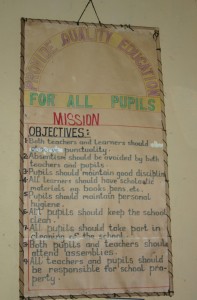 PROVIDE QUALITY EDUCATION
FOR ALL PUPILS
MISSION
OBJECTIVES:
1 Both teachers and Learners should
punctuality
2 Absentism should be avoided by both
teachers and pupils
3 Pupils should maintain good discipline
4 All learners should have scholastic
materials eg books pens etc.
5 Pupils should maintain personal
hygiene.
6 All pupils should keep the school
clean.
7 All pupils should take part in
cleaning of the school
8 Both pupils and teachers should
attend assemblies.
9 All teachers and pupils should
be responsible for school pro-
perty.